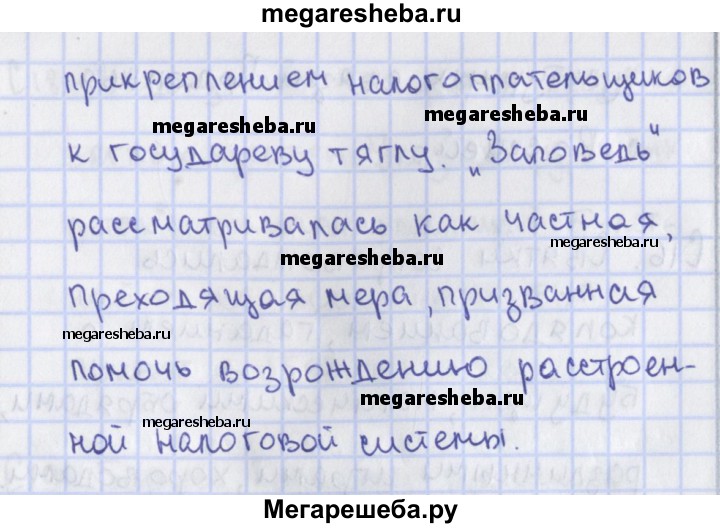 megaresheba.ru
прикреплением налогоплательщиков
megaresheba.ru
megaresheba.ru
к государеву тяглу. „Заповедь"
рассматривалась как частная,
megaresheba.ru
megaresheba.ru
преходящая мера, призванная
megaresheba.ru
помочь возрождению расстроен-
megaresheba.ru
megaresheba.ru
ной налоговой системы.
Мегарешеба.ру